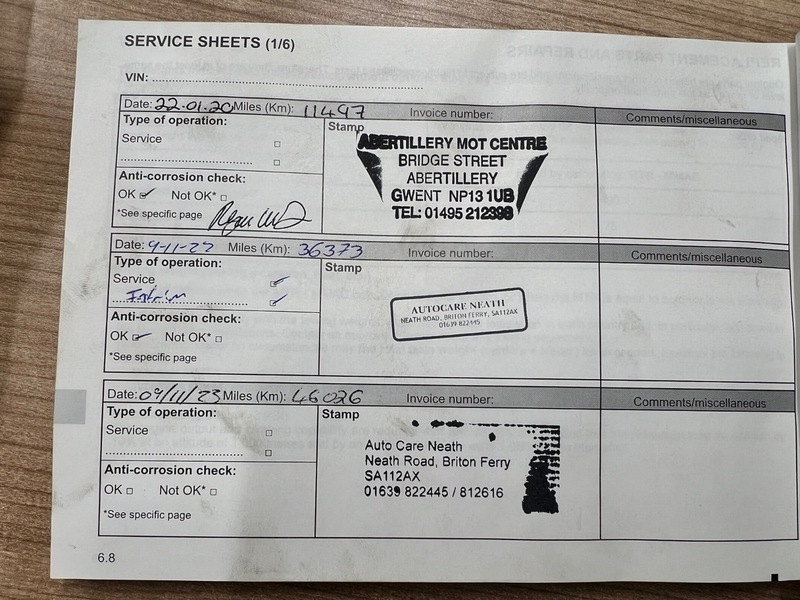 SERVICE SHEETS (1/6)
VIN:
Date: 22.01.20 Miles (Km): 11497 Invoice number: Comments/miscellaneous
Type of operation: Stamp
Service
Anti-corrosion check:
OK Not OK*
*See specific page
ABERTILLERY MOT CENTRE
BRIDGE STREET
ABERTILLERY
GWENT NP13 1UB
TEL: 01495 212398
Date: 9-11-22 Miles (Km): 36373 Invoice number: Comments/miscellaneous
Type of operation: Stamp
Service
Interim
Anti-corrosion check:
OK Not OK*
*See specific page
AUTOCARE NEATH
NEATH ROAD, BRITON FERRY, SA112AX
01639 822445
Date: 09/11/23 Miles (Km): 46026 Invoice number: Comments/miscellaneous
Type of operation: Stamp
Service
Anti-corrosion check:
OK Not OK*
*See specific page
Auto Care Neath
Neath Road, Briton Ferry
SA112AX
01639 822445 / 812616
6.8